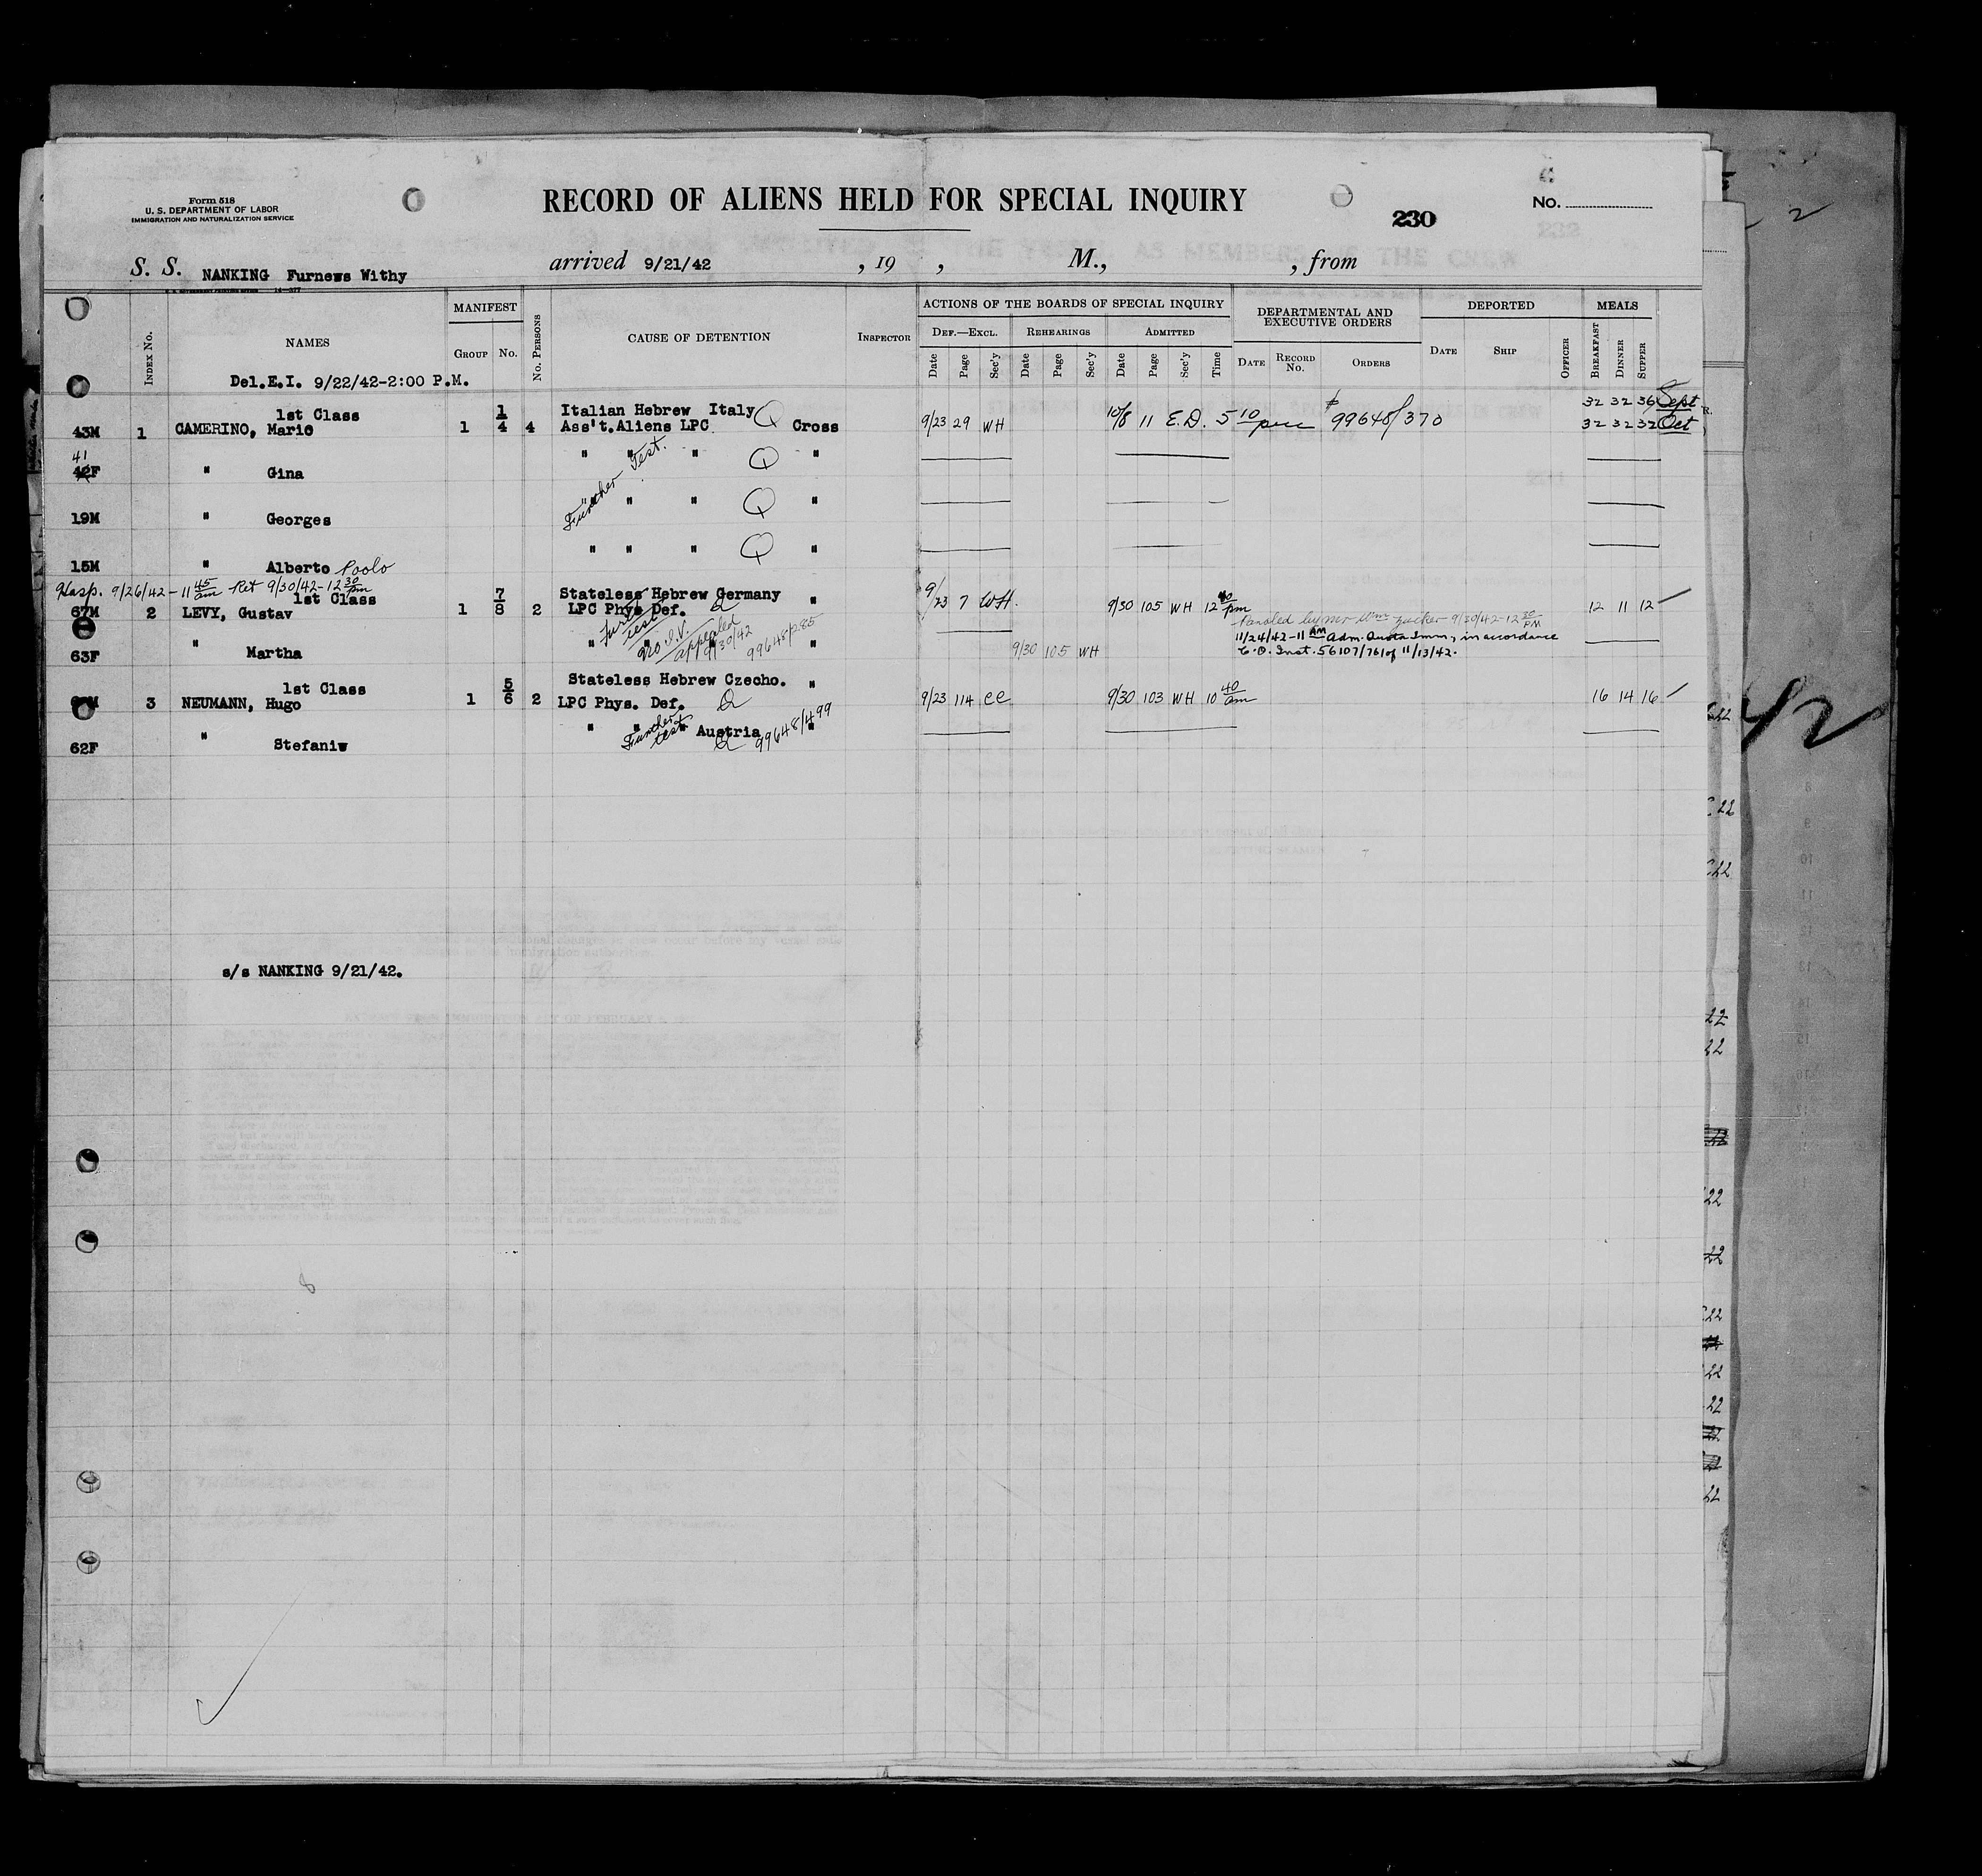 Form 518
U. S. DEPARTMENT OF LABOR
IMMIGRATION AND NATURALIZATION SERVICE
RECORD OF ALIENS HELD FOR SPECIAL INQUIRY
230
No.
S. S. NANKING Furness Withy arrived 9/21/42 , 19 , M., , from
MANIFEST ACTIONS OF THE BOARDS OF SPECIAL INQUIRY DEPARTMENTAL AND EXECUTIVE ORDERS DEPORTED MEALS
INDEX NO. NAMES GROUP NO. NO. PERSONS CAUSE OF DETENTION INSPECTOR DEF.—EXCL. REHEARINGS ADMITTED
Date Page Sec'y Date Page Sec'y Date Page Sec'y Time DATE RECORD NO. ORDERS DATE SHIP OFFICER BREAKFAST DINNER SUPPER
Del.E.I. 9/22/42-2:00 P.M.
1st Class 1 Italian Hebrew Italy Q 32 32 36 Sept
43M 1 CAMERINO, Mario 1 4 4 Ass't.Aliens LPC Cross 9/23 29 WH 10/8 11 E.D. 5 10 pm 99648/370 32 32 32 Oct
41
42F " Gina " " " Q "
Further Test.
19M " Georges " " " Q "
15M " Alberto Poolo " " " Q "
Hosp. 9/26/42-11 45 am Ret 9/30/42-12 30 pm
1st Class 7 Stateless Hebrew Germany "
67M 2 LEVY, Gustav 1 8 2 LPC Phys Def. 9/23 7 WH. 9/30 105 WH 12 40 pm 12 11 12
Further test
Paroled by Mr Wm Zucker 9/30/42-12 30 PM
No I.V. appealed 9/30/42 99648/285
11/24/42-11 AM Adm. Quota Imm, in accordance
63F " Martha " " 9/30 105 WH C.O. Inst. 56107/761 of 11/13/42.
1st Class 5 Stateless Hebrew Czecho. "
3 NEUMANN, Hugo 1 6 2 LPC Phys. Def. 9/23 114 CC 9/30 103 WH 10 40 am 16 14 16
62F " Stefaniw " " Austria "
Further test 99648/499
s/s NANKING 9/21/42.
8